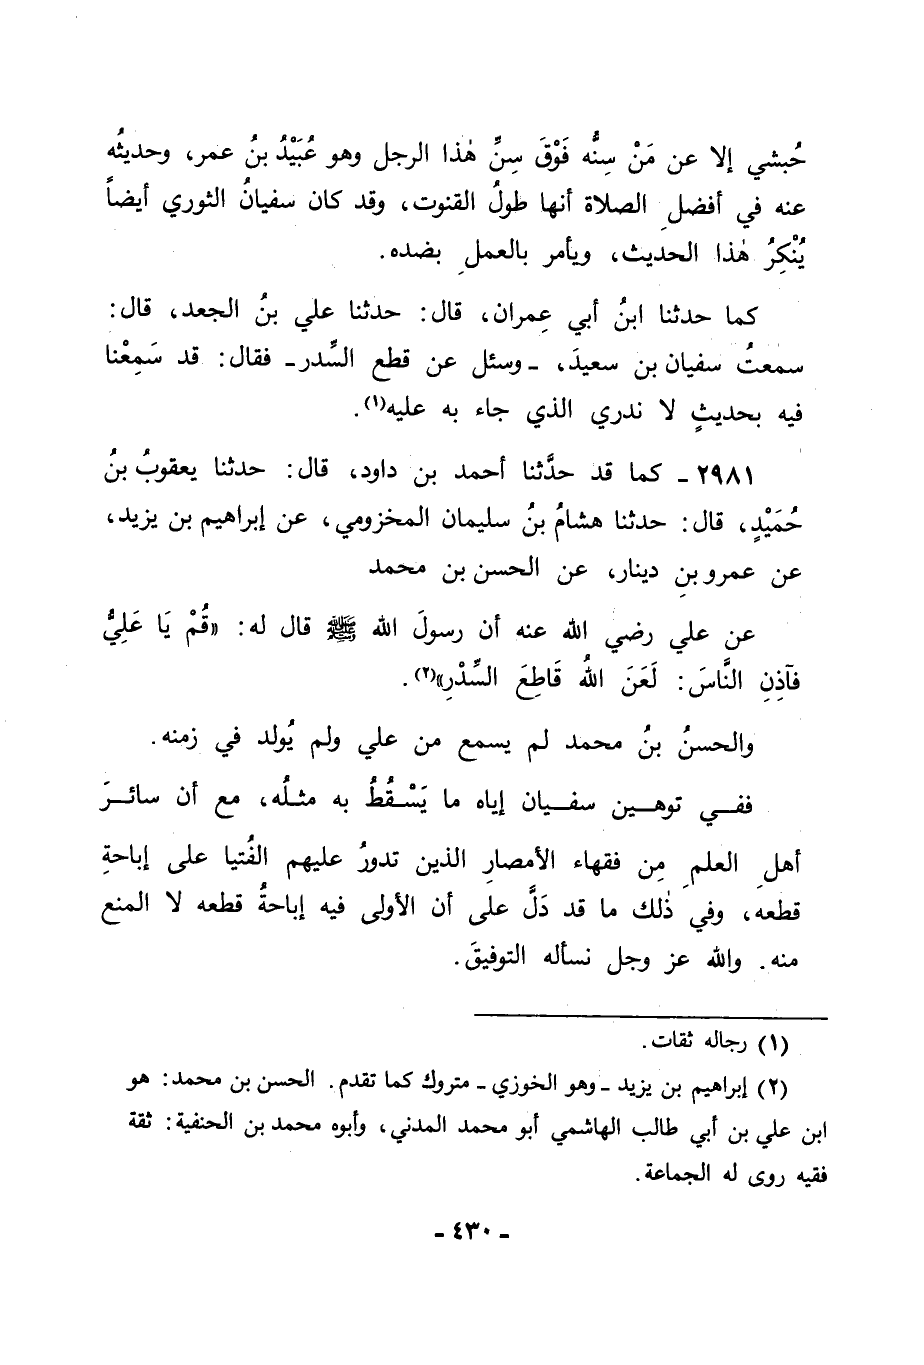 حُبشي إلا عن مَنْ سِنُّه فَوْقَ سِنِّ هٰذا الرجل وهو عُبَيْدُ بنُ عمر، وحديثُه
عنه في أفضلِ الصلاة أنها طولُ القنوت، وقد كان سفيانُ الثوري أيضاً
يُنْكِرُ هٰذا الحديث، ويأمر بالعملِ بضده.
كما حدثنا ابنُ أبي عِمران، قال: حدثنا علي بنُ الجعد، قال:
سمعتُ سفيان بن سعيدَ، ـ وسئل عن قطع السِّدر ـ فقال: قد سَمِعْنا
فيه بحديثٍ لا ندري الذي جاء به عليه(١).
٢٩٨١ ـ كما قد حدَّثنا أحمد بن داود، قال: حدثنا يعقوبُ بنُ
حُمَيْدٍ، قال: حدثنا هشامُ بنُ سليمان المخزومي، عن إبراهيم بن يزيد،
عن عمرو بنِ دينار، عن الحسن بن محمد
عن علي رضي الله عنه أن رسولَ الله ﷺ قال له: «قُمْ يَا عَلِيُّ
فَآذِنِ النَّاسَ: لَعَنَ اللهُ قَاطِعَ السِّدْرِ»(٢).
والحسنُ بنُ محمد لم يسمع من علي ولم يُولد في زمنه.
ففي توهين سفيان إياه ما يَسْقُطُ به مثلُه، مع أن سائرَ
أهلِ العلمِ مِن فقهاء الأمصارِ الذين تدورُ عليهم الفُتيا على إباحةِ
قطعه، وفي ذٰلك ما قد دَلَّ على أن الأولى فيه إباحةُ قطعه لا المنع
منه. والله عز وجل نسأله التوفيقَ.
(١) رجاله ثقات.
(٢) إبراهيم بن يزيد ـ وهو الخوزي ـ متروك كما تقدم. الحسن بن محمد: هو
ابن علي بن أبي طالب الهاشمي أبو محمد المدني، وأبوه محمد بن الحنفية: ثقة
فقيه روى له الجماعة.
ـ ٤٣٠ ـ